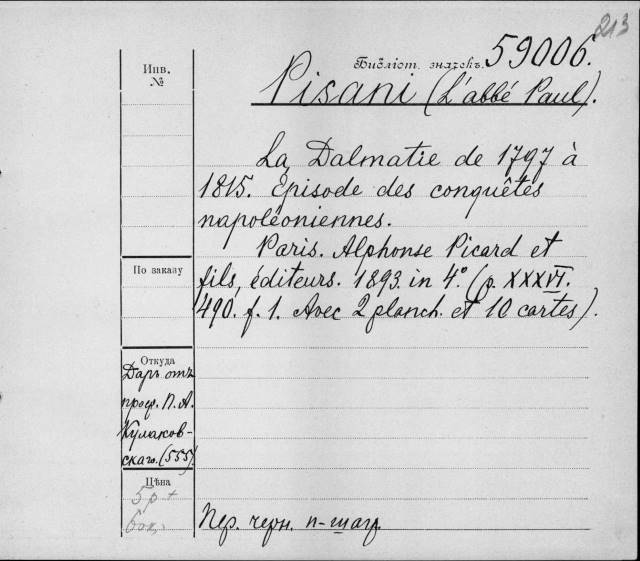 213
Библіот. значекъ. 59006.
Инв.
№
Pisani (L'abbé Paul).
La Dalmatie de 1797 à
1815. Episode des conquêtes
napoléoniennes.
Paris. Alphonse Picard et
По заказу
fils, éditeurs. 1893. in 4º. (p. XXXVI.
490. f. 1. Avec 2 planch. et 10 cartes).
Откуда
Даръ отъ
проф. П. А.
Кулаков-
скаго. (555).
Цѣна
5 р +
60 к.
Пер. черн. п-шагр.